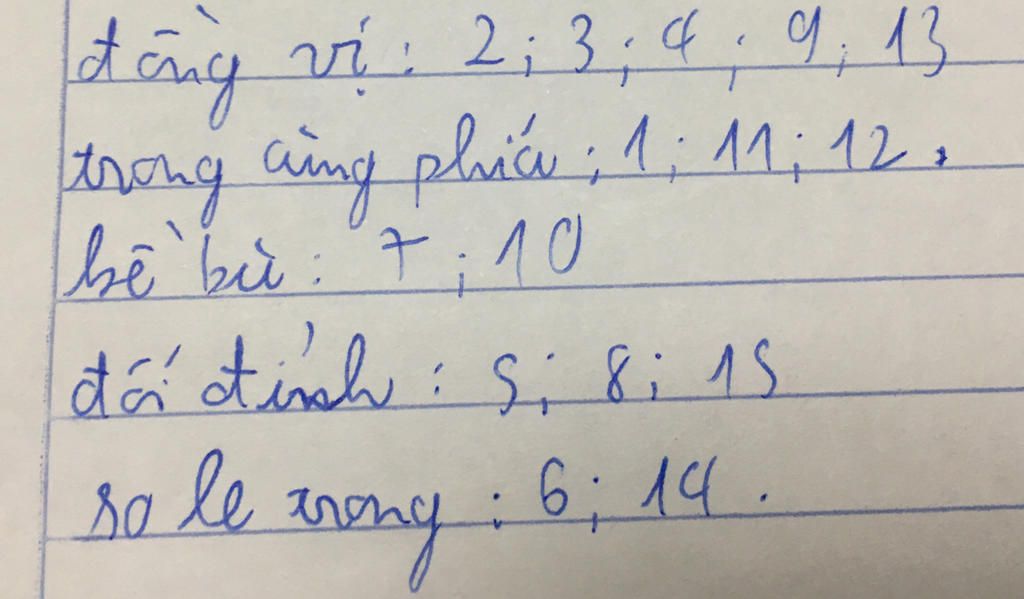 đồng vị : 2 ; 3 ; 4 ; 9 ; 13
trong cùng phía ; 1 ; 11 ; 12 .
kề bù : 7 ; 10
đối đỉnh : 5 ; 8 ; 15
so le trong : 6 ; 14 .